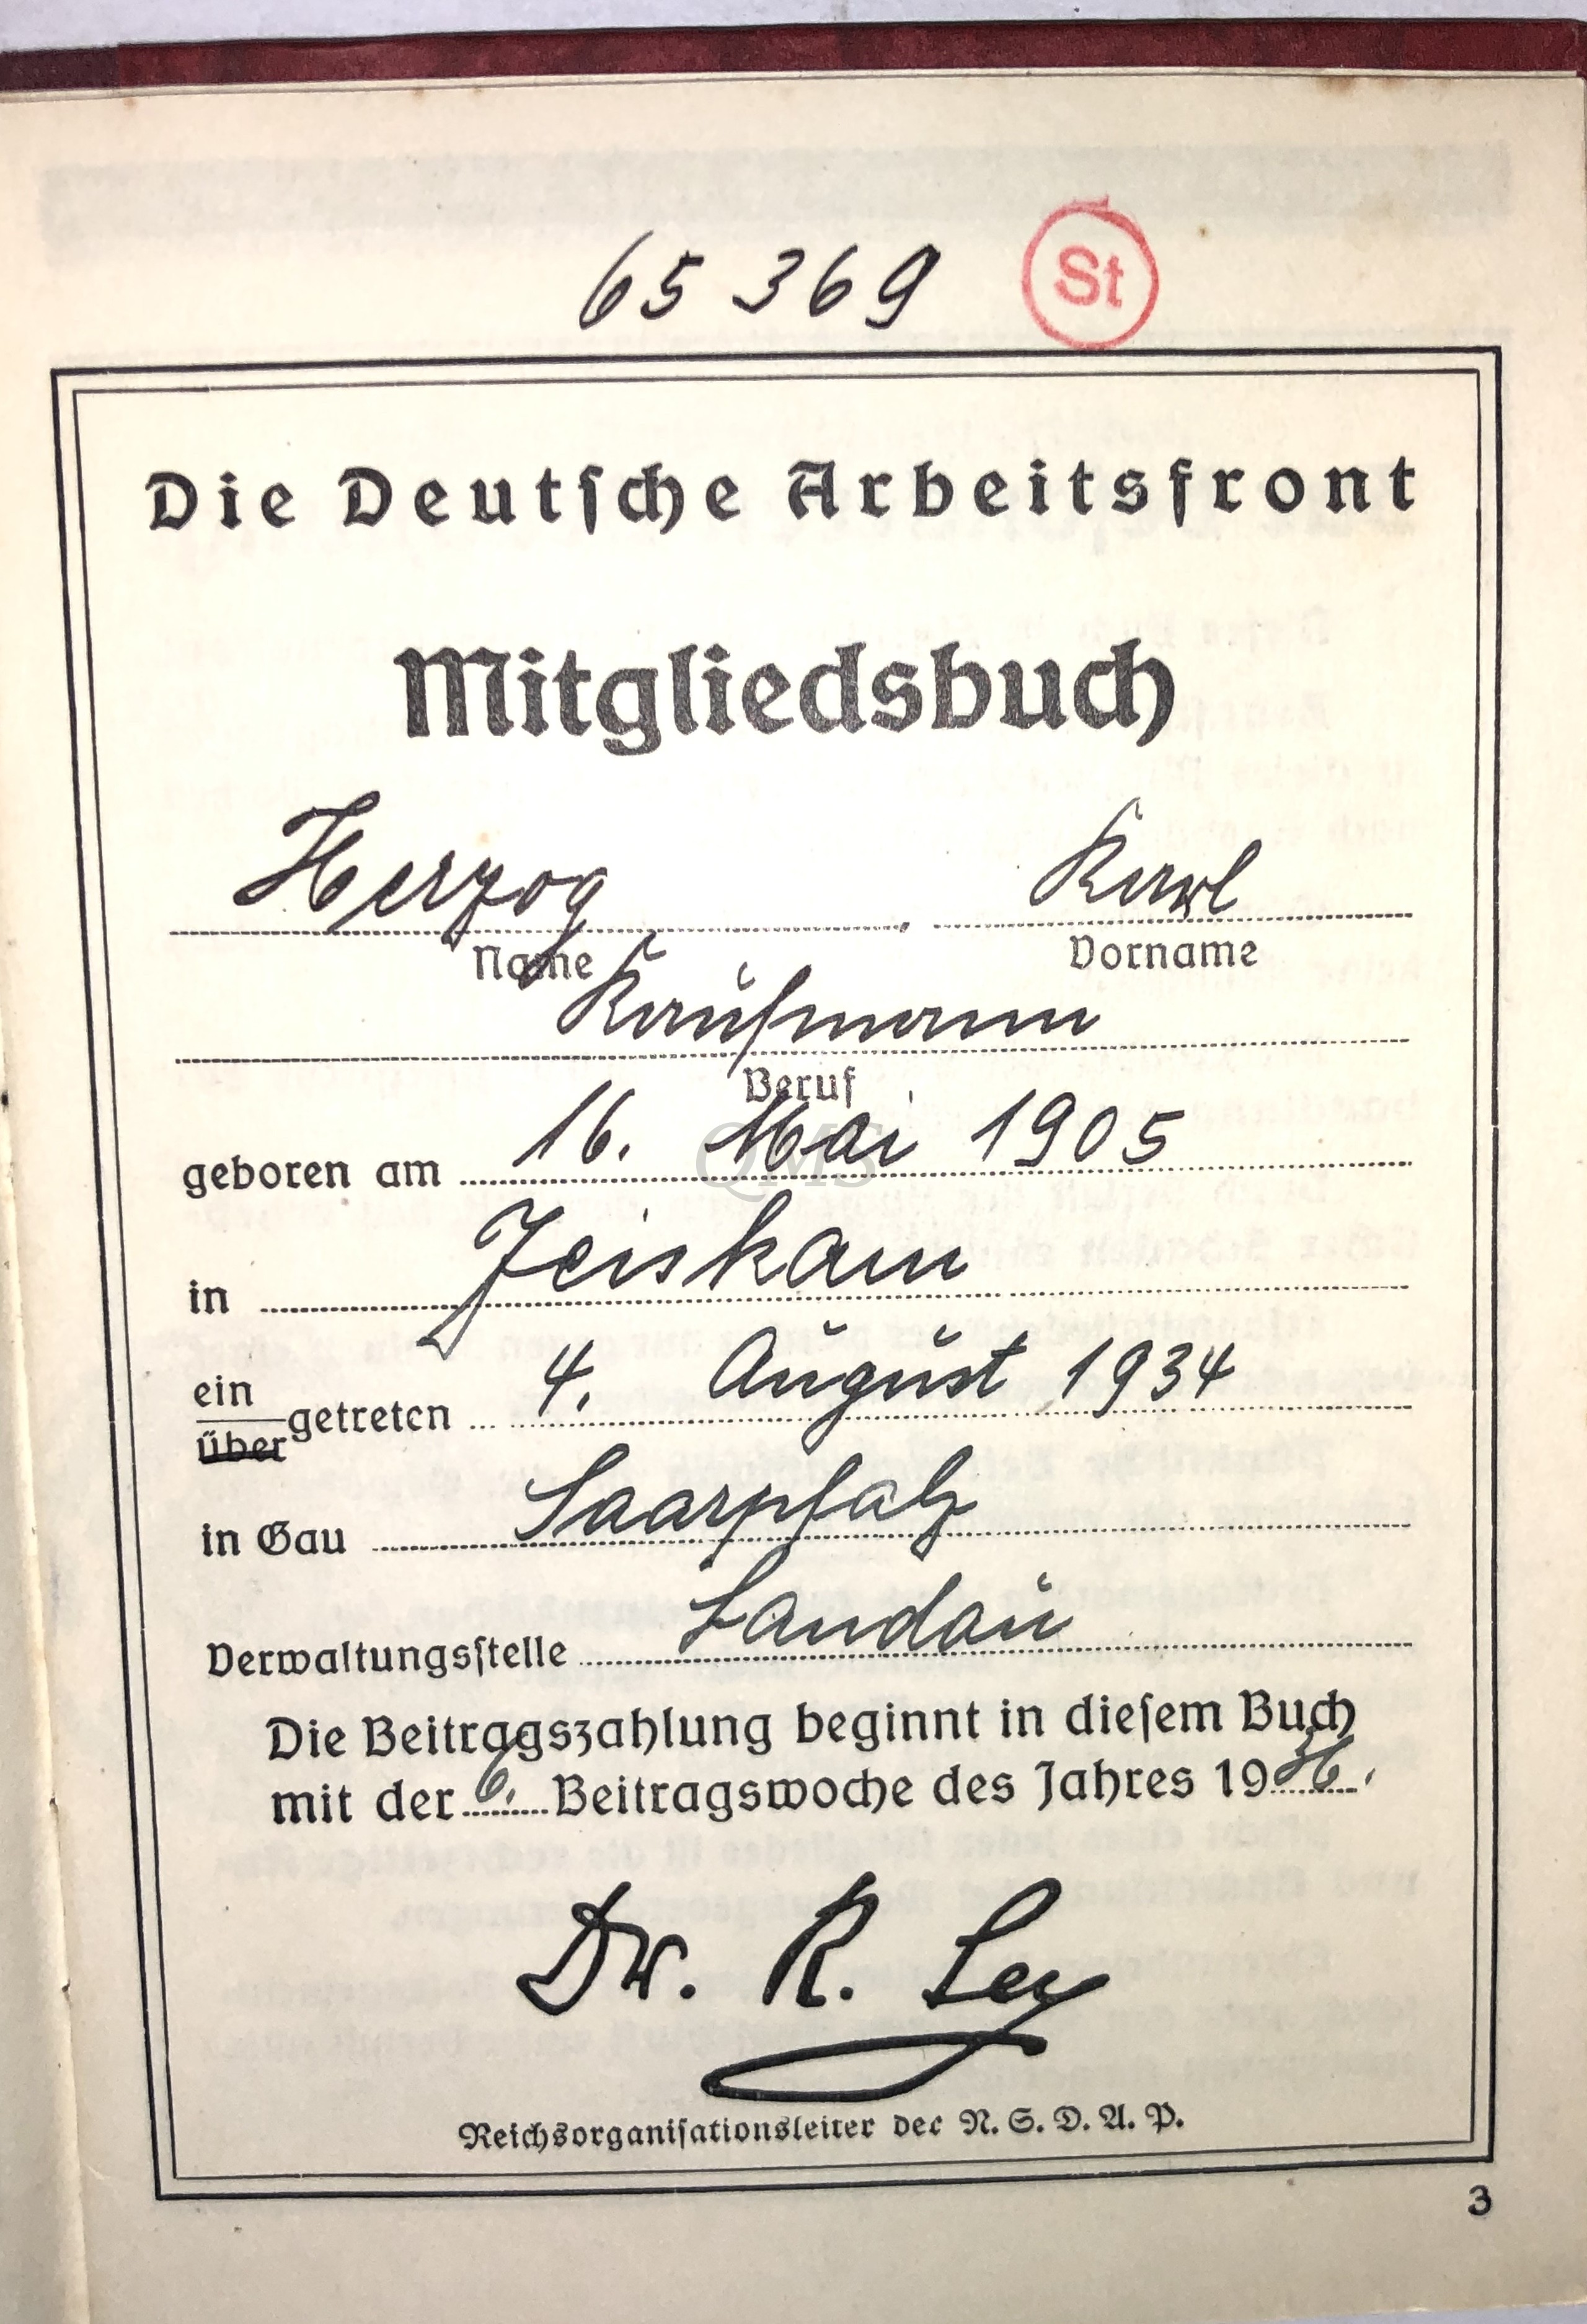 65 369 St
Die Deutsche Arbeitsfront
Mitgliedsbuch
Herzog, Karl
Name Vorname
Kaufmann
Beruf
geboren am 16. Mai 1905
QMS
in Zeiskam
ein
getreten 4. August 1934
über
in Gau Saarpfalz
Verwaltungsstelle Landau
Die Beitragszahlung beginnt in diesem Buch
mit der 6. Beitragswoche des Jahres 1936.
Dr. R. Ley
Reichsorganisationsleiter der N. S. D. A. P.
3